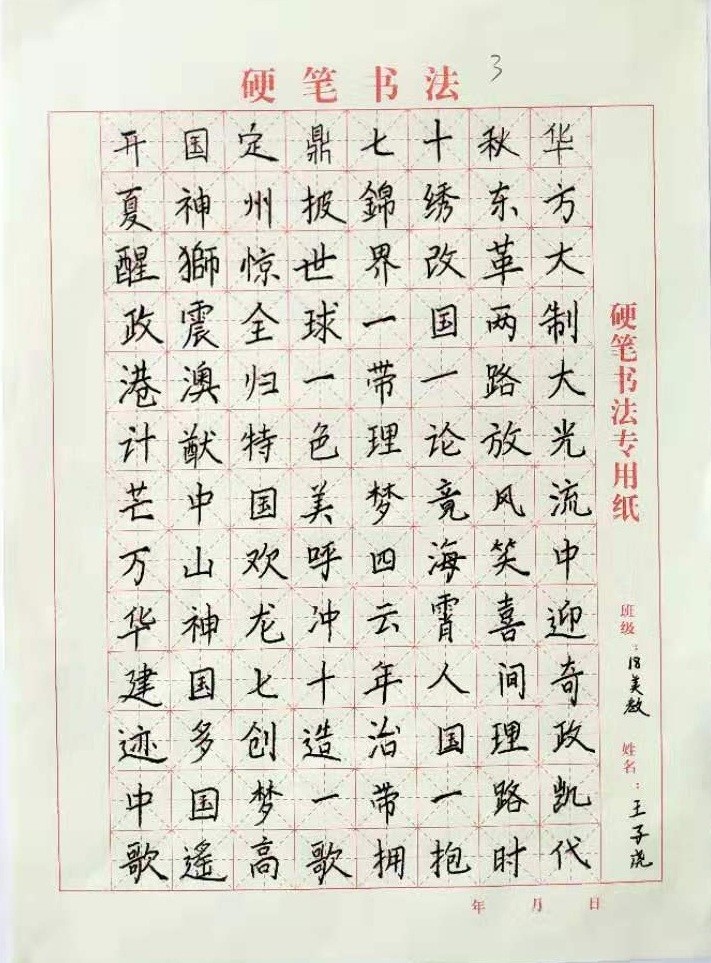 硬笔书法
3
开国定鼎七十秋华
夏神州披錦绣东方
醒獅惊世界改革大
政震全球一国两制
港澳归一带一路大
计猷特色理论放光
芒中国美梦竟风流
万山欢呼四海笑中
华神龙冲云霄喜迎
建国七十年人间奇
迹多创造治国理政
中国梦一带一路凯
歌遥高歌拥抱时代
硬笔书法专用纸
班级:18美教
姓名:王子
年 月 日